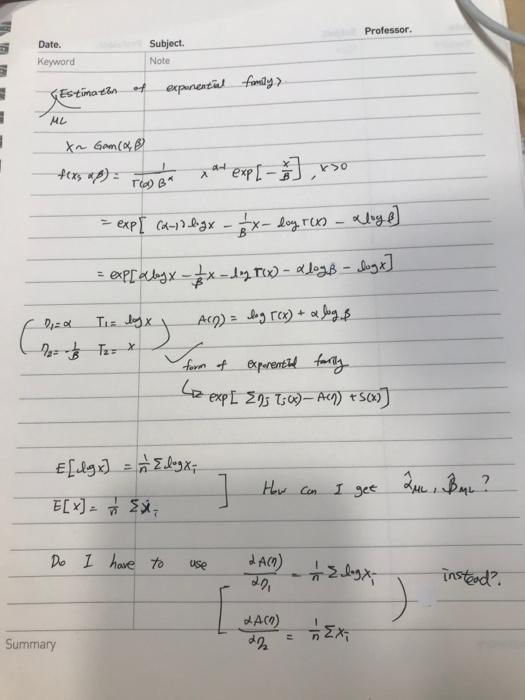 Professor.
Date. Subject.
Keyword Note
<Estimation of exponential family>
ML
X ~ Gam(α, β)
f(x; α, β) = 1/(Γ(α) β^α) x^(α-1) exp[-x/β], x>0
= exp[(α-1) log x - 1/β x - log Γ(α) - α log β]
= exp[α log x - 1/β x - log Γ(α) - α log β - log x]
(η1 = α T1 = log x A(η) = log Γ(α) + α log β
η2 = -1/β T2 = x)
form of exponential family
↳ exp[Σ ηj Tj(x) - A(η) + S(x)]
E[log x] = 1/n Σ log xi
E[x] = 1/n Σ xi ] How can I get α̂ML, β̂ML?
Do I have to use [ dA(η)/dη1 = 1/n Σ log xi ) instead?
dA(η)/dη2 = 1/n Σ xi
Summary